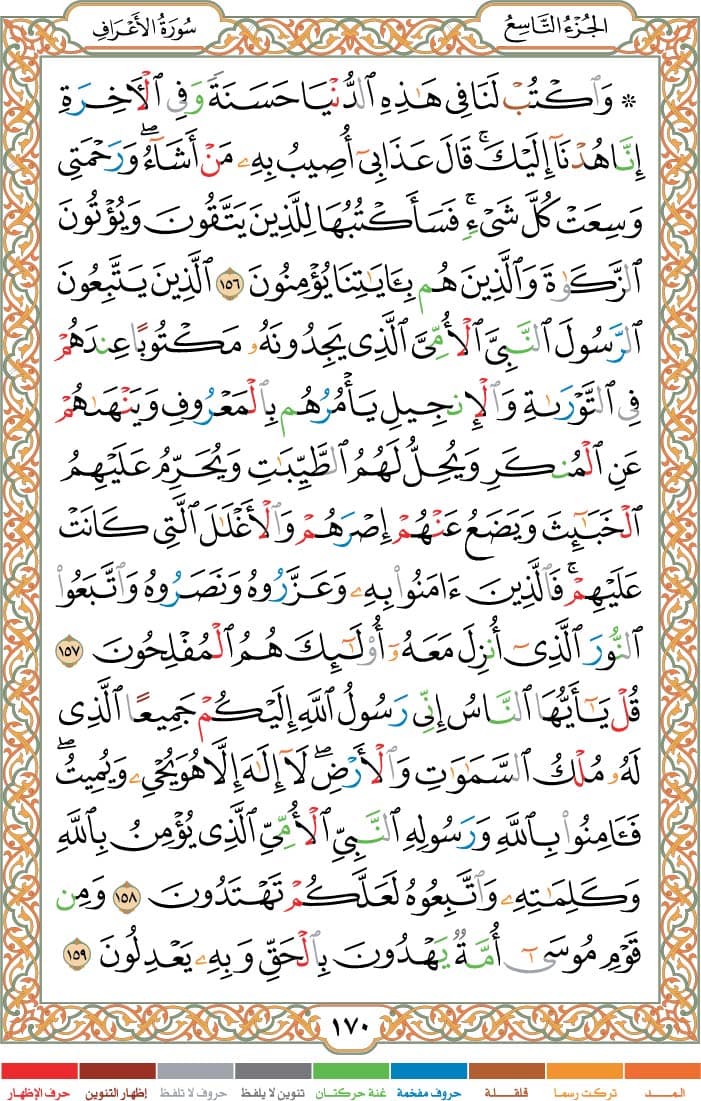 الجُزْءُ التَّاسِعُ
سُورَةُ الأَعْرَافِ
* وَٱكْتُبْ لَنَا فِي هَٰذِهِ ٱلدُّنْيَا حَسَنَةً وَفِي ٱلْأٓخِرَةِ
إِنَّا هُدْنَآ إِلَيْكَۚ قَالَ عَذَابِيٓ أُصِيبُ بِهِۦ مَنْ أَشَآءُۖ وَرَحْمَتِي
وَسِعَتْ كُلَّ شَيْءٍۚ فَسَأَكْتُبُهَا لِلَّذِينَ يَتَّقُونَ وَيُؤْتُونَ
ٱلزَّكَوٰةَ وَٱلَّذِينَ هُم بِـَٔايَٰتِنَا يُؤْمِنُونَ ١٥٦ ٱلَّذِينَ يَتَّبِعُونَ
ٱلرَّسُولَ ٱلنَّبِيَّ ٱلْأُمِّيَّ ٱلَّذِي يَجِدُونَهُۥ مَكْتُوبًا عِندَهُمْ
فِي ٱلتَّوْرَىٰةِ وَٱلْإِنجِيلِ يَأْمُرُهُم بِٱلْمَعْرُوفِ وَيَنْهَىٰهُمْ
عَنِ ٱلْمُنكَرِ وَيُحِلُّ لَهُمُ ٱلطَّيِّبَٰتِ وَيُحَرِّمُ عَلَيْهِمُ
ٱلْخَبَٰٓئِثَ وَيَضَعُ عَنْهُمْ إِصْرَهُمْ وَٱلْأَغْلَٰلَ ٱلَّتِي كَانَتْ
عَلَيْهِمْۚ فَٱلَّذِينَ ءَامَنُوا۟ بِهِۦ وَعَزَّرُوهُ وَنَصَرُوهُ وَٱتَّبَعُوا۟
ٱلنُّورَ ٱلَّذِيٓ أُنزِلَ مَعَهُۥٓ أُو۟لَٰٓئِكَ هُمُ ٱلْمُفْلِحُونَ ١٥٧
قُلْ يَٰٓأَيُّهَا ٱلنَّاسُ إِنِّي رَسُولُ ٱللَّهِ إِلَيْكُمْ جَمِيعًا ٱلَّذِي
لَهُۥ مُلْكُ ٱلسَّمَٰوَٰتِ وَٱلْأَرْضِۖ لَآ إِلَٰهَ إِلَّا هُوَ يُحْيِۦ وَيُمِيتُۖ
فَـَٔامِنُوا۟ بِٱللَّهِ وَرَسُولِهِ ٱلنَّبِيِّ ٱلْأُمِّيِّ ٱلَّذِي يُؤْمِنُ بِٱللَّهِ
وَكَلِمَٰتِهِۦ وَٱتَّبِعُوهُ لَعَلَّكُمْ تَهْتَدُونَ ١٥٨ وَمِن
قَوْمِ مُوسَىٰٓ أُمَّةٌ يَهْدُونَ بِٱلْحَقِّ وَبِهِۦ يَعْدِلُونَ ١٥٩
١٧٠
المـــد
تركت رسما
قلقلة
حروف مفخمة
غنة حركتان
تنوين لا يلفظ
حروف لا تلفظ
إظهار التنوين
حرف الإظهار